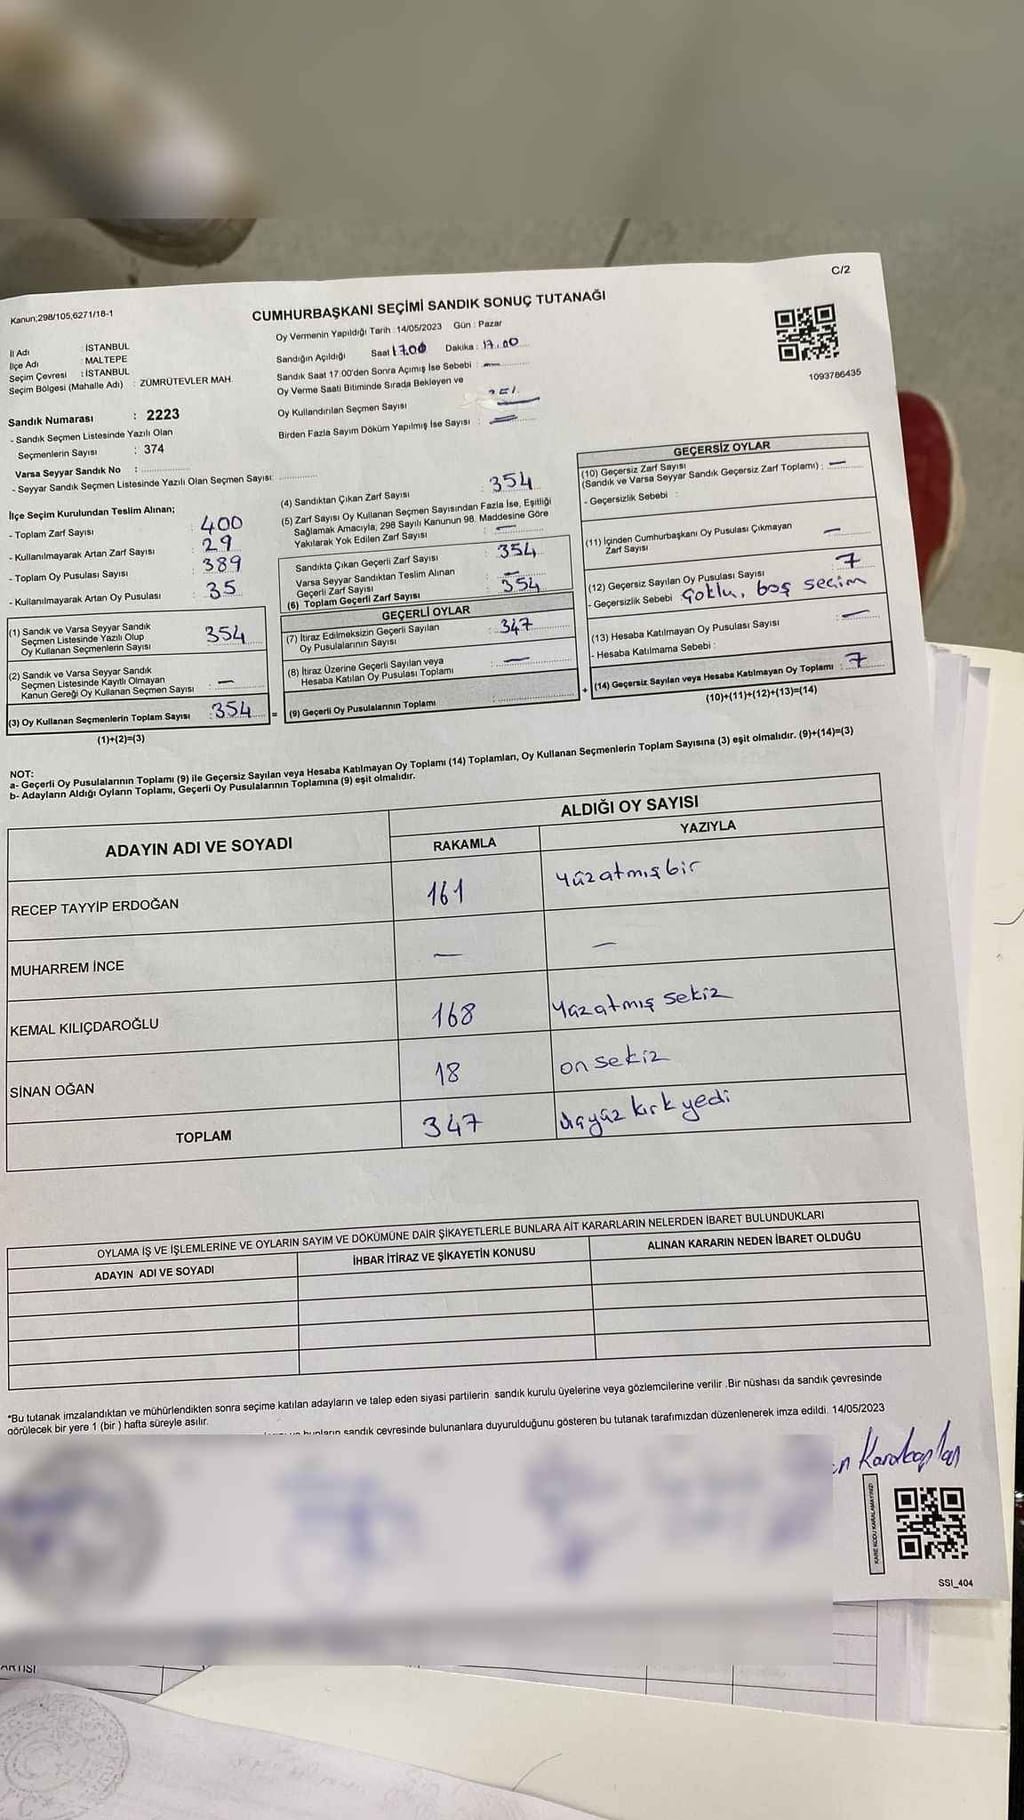 C/2
Kanun,298/105,6271/18-1
CUMHURBAŞKANI SEÇİMİ SANDIK SONUÇ TUTANAĞI
Oy Vermenin Yapıldığı Tarih : 14/05/2023 Gün : Pazar
İl Adı : İSTANBUL
İlçe Adı : MALTEPE
Seçim Çevresi : İSTANBUL
Seçim Bölgesi (Mahalle Adı) : ZÜMRÜTEVLER MAH.
Sandığın Açıldığı Saat 17.00 Dakika : 17.00
Sandık Saat 17.00'den Sonra Açımış İse Sebebi : —
Oy Verme Saati Bitiminde Sırada Bekleyen ve
Oy Kullandırılan Seçmen Sayısı
Birden Fazla Sayım Döküm Yapılmış İse Sayısı :
1093786435
Sandık Numarası : 2223
- Sandık Seçmen Listesinde Yazılı Olan
Seçmenlerin Sayısı : 374
Varsa Seyyar Sandık No :
- Seyyar Sandık Seçmen Listesinde Yazılı Olan Seçmen Sayısı:
İlçe Seçim Kurulundan Teslim Alınan;
- Toplam Zarf Sayısı : 400
- Kullanılmayarak Artan Zarf Sayısı : 29
- Toplam Oy Pusulası Sayısı : 389
- Kullanılmayarak Artan Oy Pusulası : 35
(1) Sandık ve Varsa Seyyar Sandık
Seçmen Listesinde Yazılı Olup
Oy Kullanan Seçmenlerin Sayısı : 354
(2) Sandık ve Varsa Seyyar Sandık
Seçmen Listesinde Kayıtlı Olmayan
Kanun Gereği Oy Kullanan Seçmen Sayısı : —
(3) Oy Kullanan Seçmenlerin Toplam Sayısı : 354 =
(1)+(2)=(3)
(4) Sandıktan Çıkan Zarf Sayısı : 354
(5) Zarf Sayısı Oy Kullanan Seçmen Sayısından Fazla İse, Eşitliği
Sağlamak Amacıyla, 298 Sayılı Kanunun 98. Maddesine Göre
Yakılarak Yok Edilen Zarf Sayısı : —
Sandıkta Çıkan Geçerli Zarf Sayısı : 354
Varsa Seyyar Sandıktan Teslim Alınan
Geçerli Zarf Sayısı : —
(6) Toplam Geçerli Zarf Sayısı : 354
GEÇERLİ OYLAR
(7) İtiraz Edilmeksizin Geçerli Sayılan
Oy Pusulalarının Sayısı : 347
(8) İtiraz Üzerine Geçerli Sayılan veya
Hesaba Katılan Oy Pusulası Toplamı : —
(9) Geçerli Oy Pusulalarının Toplamı : +
GEÇERSİZ OYLAR
(10) Geçersiz Zarf Sayısı
(Sandık ve Varsa Seyyar Sandık Geçersiz Zarf Toplamı) : —
- Geçersizlik Sebebi :
(11) İçinden Cumhurbaşkanı Oy Pusulası Çıkmayan
Zarf Sayısı : —
(12) Geçersiz Sayılan Oy Pusulası Sayısı : 7
- Geçersizlik Sebebi Çoklu, boş seçim
(13) Hesaba Katılmayan Oy Pusulası Sayısı : —
- Hesaba Katılmama Sebebi :
(14) Geçersiz Sayılan veya Hesaba Katılmayan Oy Toplamı : 7
(10)+(11)+(12)+(13)=(14)
NOT:
a- Geçerli Oy Pusulalarının Toplamı (9) ile Geçersiz Sayılan veya Hesaba Katılmayan Oy Toplamı (14) Toplamları, Oy Kullanan Seçmenlerin Toplam Sayısına (3) eşit olmalıdır. (9)+(14)=(3)
b- Adayların Aldığı Oyların Toplamı, Geçerli Oy Pusulalarının Toplamına (9) eşit olmalıdır.
ADAYIN ADI VE SOYADI ALDIĞI OY SAYISI
RAKAMLA YAZIYLA
RECEP TAYYİP ERDOĞAN 161 Yüzatmışbir
MUHARREM İNCE — —
KEMAL KILIÇDAROĞLU 168 Yüzatmış sekiz
SİNAN OĞAN 18 on sekiz
TOPLAM 347 üçyüz kırk yedi
OYLAMA İŞ VE İŞLEMLERİNE VE OYLARIN SAYIM VE DÖKÜMÜNE DAİR ŞİKAYETLERLE BUNLARA AİT KARARLARIN NELERDEN İBARET BULUNDUKLARI
ADAYIN ADI VE SOYADI İHBAR İTİRAZ VE ŞİKAYETİN KONUSU ALINAN KARARIN NEDEN İBARET OLDUĞU
*Bu tutanak imzalandıktan ve mühürlendikten sonra seçime katılan adayların ve talep eden siyasi partilerin sandık kurulu üyelerine veya gözlemcilerine verilir .Bir nüshası da sandık çevresinde
görülecek bir yere 1 (bir ) hafta süreyle asılır.
bunların sandık çevresinde bulunanlara duyurulduğunu gösteren bu tutanak tarafımızdan düzenlenerek imza edildi. 14/05/2023
Karakaplan
KARE KODU KARALAMAYINIZ!
SSI_404
ARTİSİ